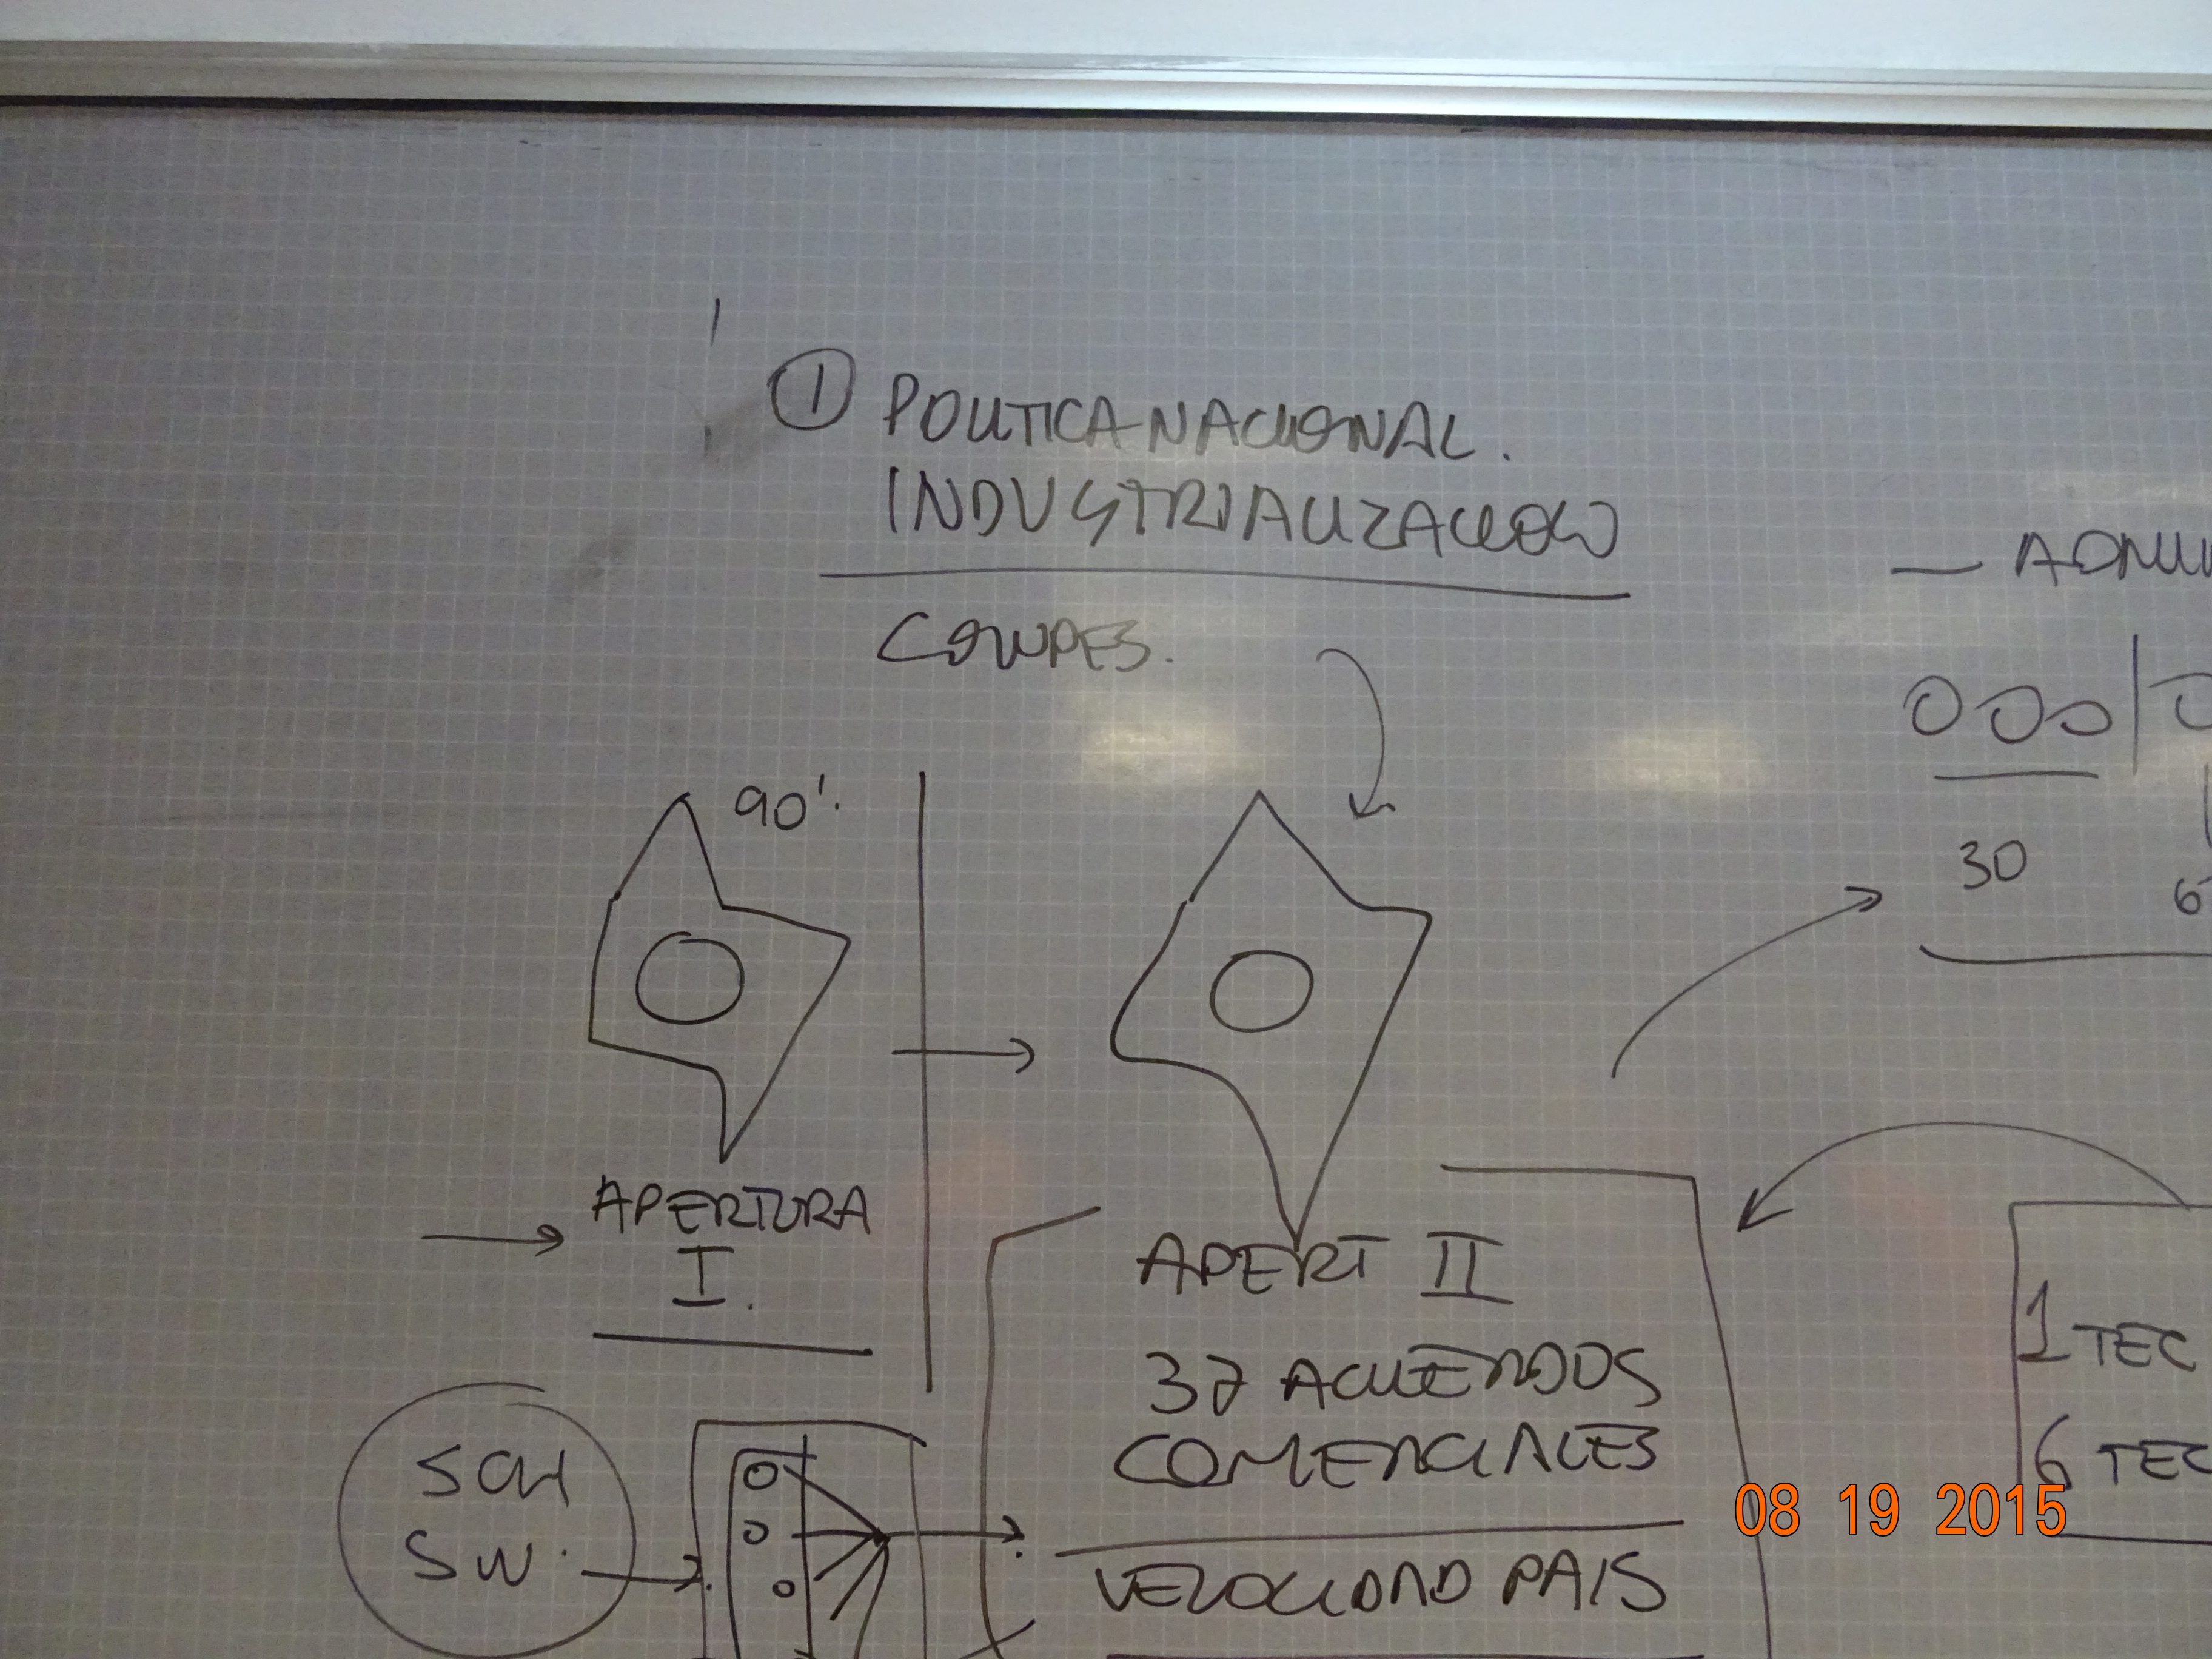 ① POLITICA NACIONAL.
INDUSTRIALIZACION
CONPES.
90'.
APERTURA
I.
APERT II
37 ACUERDOS
COMERCIALES
VELOCIDAD PAIS
SCH
SW.
30
6
1 TEC
6 TEC
08 19 2015